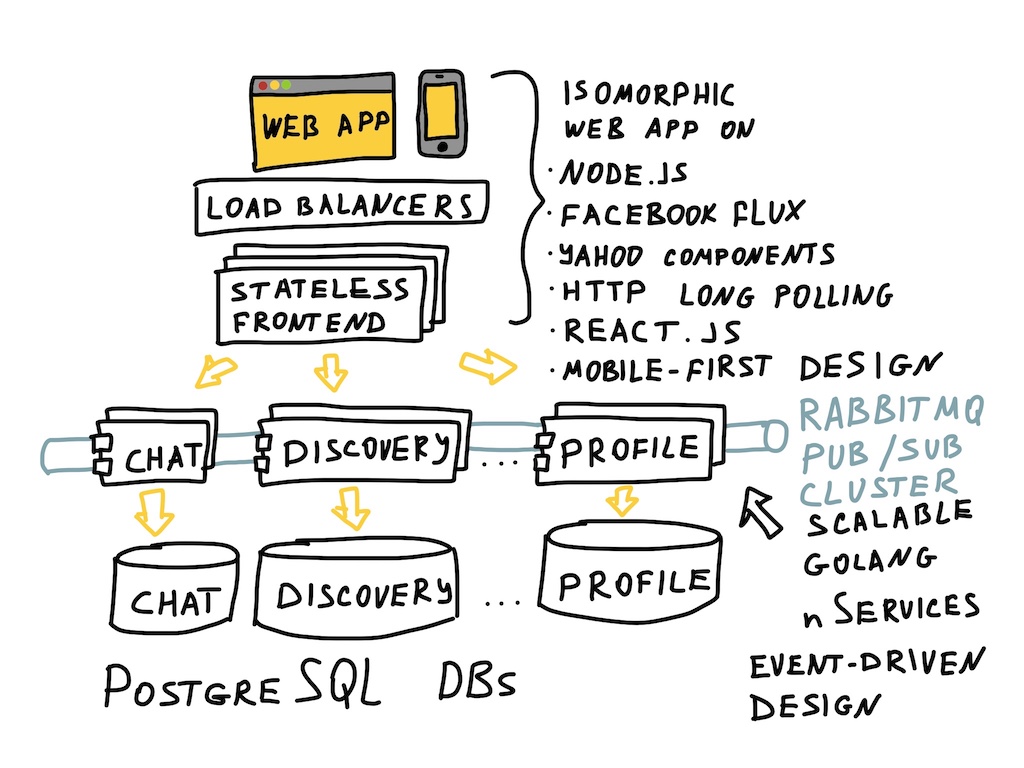 WEB APP
LOAD BALANCERS
STATELESS
FRONTEND
ISOMORPHIC
WEB APP ON
· NODE.JS
· FACEBOOK FLUX
· YAHOO COMPONENTS
· HTTP LONG POLLING
· REACT.JS
· MOBILE-FIRST DESIGN
CHAT
DISCOVERY
...
PROFILE
RABBITMQ
PUB/SUB
CLUSTER
SCALABLE
GOLANG
nSERVICES
EVENT-DRIVEN
DESIGN
CHAT
DISCOVERY
...
PROFILE
POSTGRESQL DBs